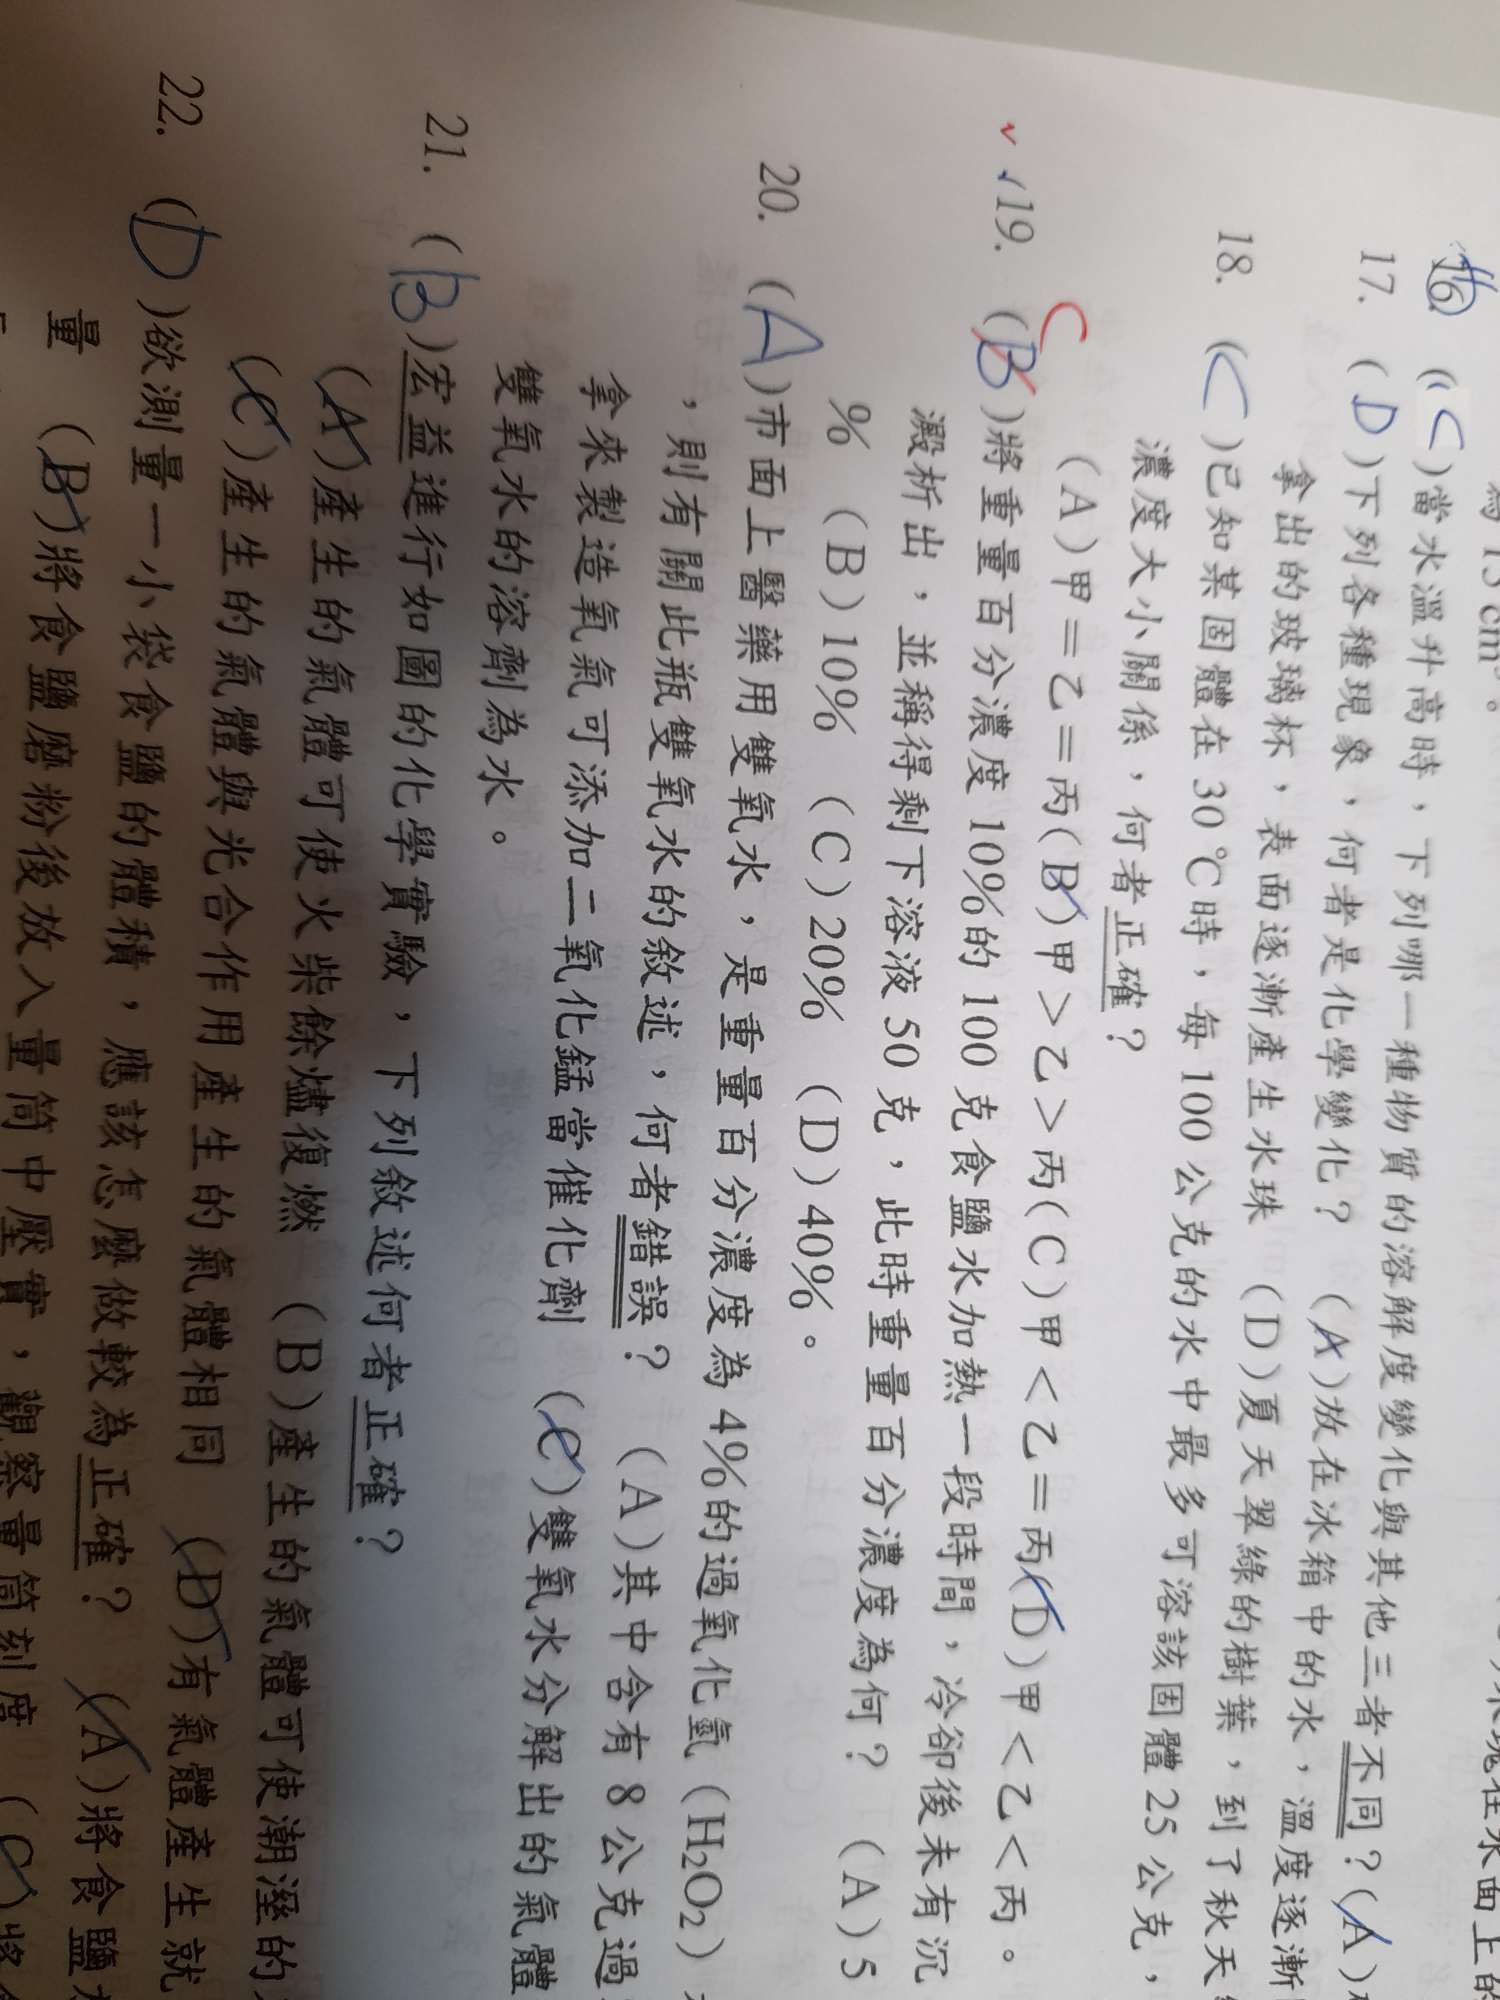 為 13 cm³。
16. (C)當水溫升高時，下列哪一種物質的溶解度變化與其他三者不同？(A)
17. (D)下列各種現象，何者是化學變化？ (A)放在冰箱中的水，溫度逐漸
拿出的玻璃杯，表面逐漸產生水珠 (D)夏天翠綠的樹葉，到了秋天
18. (C)已知某固體在 30 ℃時，每 100 公克的水中最多可溶該固體 25 公克，
濃度大小關係，何者正確？
(A)甲＝乙＝丙(B)甲＞乙＞丙(C)甲＜乙＝丙(D)甲＜乙＜丙。
C
19. (B)將重量百分濃度 10%的 100 克食鹽水加熱一段時間，冷卻後未有沉
澱析出，並稱得剩下溶液 50 克，此時重量百分濃度為何？ (A) 5
% (B) 10% (C) 20% (D) 40%。
20. (A)市面上醫藥用雙氧水，是重量百分濃度為 4%的過氧化氫（H₂O₂）
，則有關此瓶雙氧水的敘述，何者錯誤？ (A)其中含有 8 公克過
拿來製造氧氣可添加二氧化錳當催化劑 (C)雙氧水分解出的氣體
雙氧水的溶劑為水。
21. (B)宏益進行如圖的化學實驗，下列敘述何者正確？
(A)產生的氣體可使火柴餘燼復燃 (B)產生的氣體可使潮溼的
(C)產生的氣體與光合作用產生的氣體相同 (D)有氣體產生就
22. (D)欲測量一小袋食鹽的體積，應該怎麼做較為正確？ (A)將食鹽
量 (B)將食鹽磨粉後放入量筒中壓實，觀察量筒刻度 (C)將